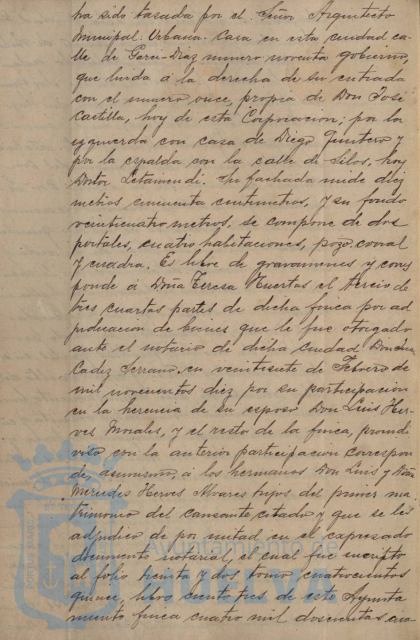 ha sido tasada por el Señor Arquitecto
Municipal. Urbana. Casa en esta ciudad ca
lle de Garci-Diaz numero noventa gobierno,
que linda á la derecha de su entrada
con el numero once, propia de Don José
Castilla, hoy de esta Corporacion; por la
izquierda con casa de Diego Quintero y
por la espalda con la calle de Silos, hoy
Doctor Letamendi. Su fachada mide diez
metros cincuenta centimetros, y su fondo
veinticuatro metros, se compone de dos
portales, cuatro habitaciones, pozo, corral
y cuadra. Es libre de gravamenes y corres
ponde á Doña Teresa Huertas el tercio de
tres cuartas partes de dicha finca por ad
judicacion de bienes que le fue otorgado
ante el notario de dicha ciudad Don
Cadiz Serrano, en veintisiete de Febrero de
mil novecientos diez por su participacion
en la herencia de su esposo Don Luis Her
ves Morales, y el resto de la finca, proindi
viso con la anterior participacion correspon
de, á los hermanos Don Luis y Doña
Mercedes Herves Alvares hijos del primer ma
trimonio del causante citado y que se les
adjudicó de por mitad en el expresado
documento notarial, el cual fue inscripto
al folio treinta y dos tomo cuatrocientos
quince, libro ciento tres de este Ayunta
miento finca cuatro mil doscientas